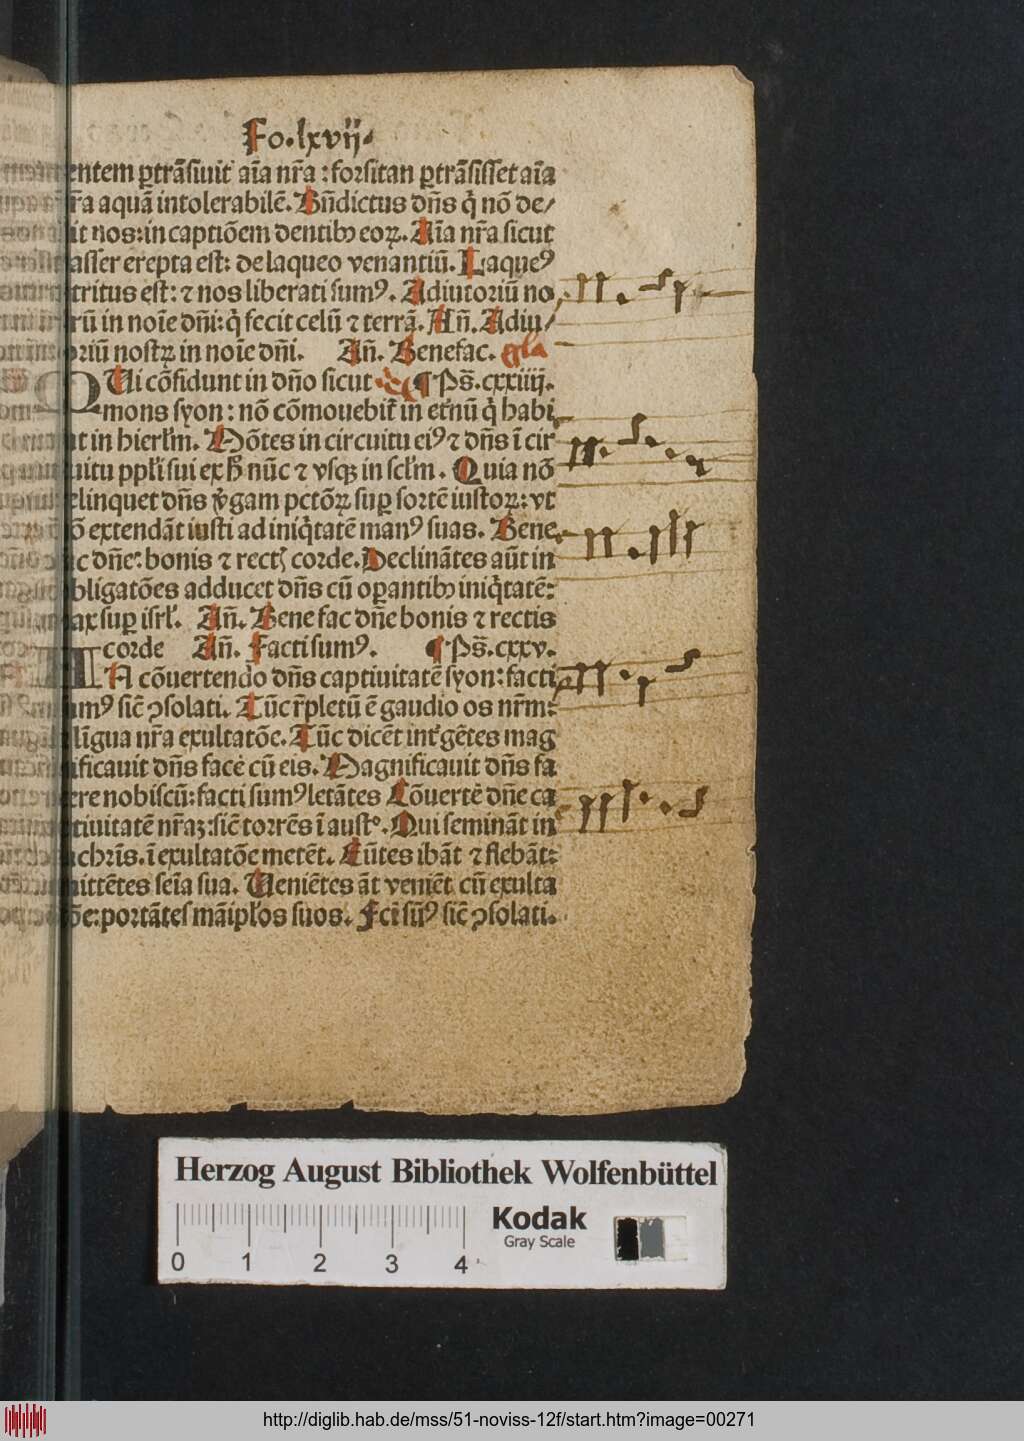 Fo.lxvij
entem ꝑtrãſiuit aĩa nr̃a : forſitan ꝑtrãſiſſet aĩa
r̃a aquã intolerabilẽ. Bñdictus dñs q̇ nõ de/
it nos: in captiõem dentibꝰ eoꝝ. Aĩa nr̃a ſicut
aſſer erepta eſt: de laqueo venantiũ. Laqueꝰ
tritus eſt: ⁊ nos liberati ſumꝰ. Adiutoriũ no
rũ in noĩe dñi: q̇ fecit celũ ⁊ terrã. Añ. Adiu/
oriũ noſtꝝ in noĩe dñi. Añ. Benefac. gla
QUi cõfidunt in dño ſicut ¶ Ps̃.cxxiiij.
mons ſyon : nõ cõmouebit̃ in etñũ q̇ habi
t in hierl̃m. Mõtes in circuitu eiꝰ ⁊ dñs ĩ cir
uitu ppl̃i ſui ex h̃ nũc ⁊ vſqꝫ in ſcl̃m. Quia nõ
elinquet dñs ṽgam pctõꝝ ſuꝑ ſortẽ iuſtoꝝ: vt
õ extendãt iuſti ad iniq̇tatẽ manꝰ ſuas. Bene
c dñe: bonis ⁊ rectꝭ corde. Declinãtes aũt in
bligatões adducet dñs cũ oꝑantibꝰ iniq̇tatẽ:
ax ſuꝑ iſrl̃. Añ. Bene fac dñe bonis ⁊ rectis
corde Añ. Facti ſumꝰ. ¶ Ps̃.cxxv.
IN cõuertendo dñs captiuitatẽ ſyon: facti
umꝰ ſic̃ ꝯſolati. Tũc r̃pletũ ẽ gaudio os nr̃m:
lĩgua nr̃a exultatõe. Tũc dicẽt int̃ gẽtes mag
ificauit dñs facẽ cũ eis. Magnificauit dñs fa
ere nobiſcũ: facti ſumꝰ letãtes Cõuertẽ dñe ca
tiuitatẽ nr̃aꝫ: ſic̃ torrẽs ĩ auſtº. Qui ſeminãt in
chrĩs. ĩ exultatõe metẽt. Eũtes ibãt ⁊ flebãt:
ittẽtes ſeĩa ſua. Ueniẽtes ãt veniẽt cũ exulta
õe: portãtes mãipl̃os ſuos. Fcĩ ſũꝰ ſic̃ ꝯſolati.
Herzog August Bibliothek Wolfenbüttel
0 1 2 3 4
Kodak
Gray Scale
http://diglib.hab.de/mss/51-noviss-12f/start.htm?image=00271